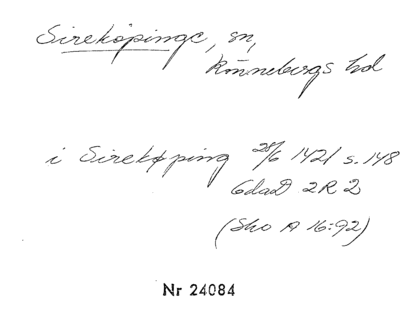 Sireköpinge, sn,
Rönnebergs hd
i Sirekøping 28/6 1421 s. 148
GdaD 2R 2
(Sko A 16:92)
Nr 24084